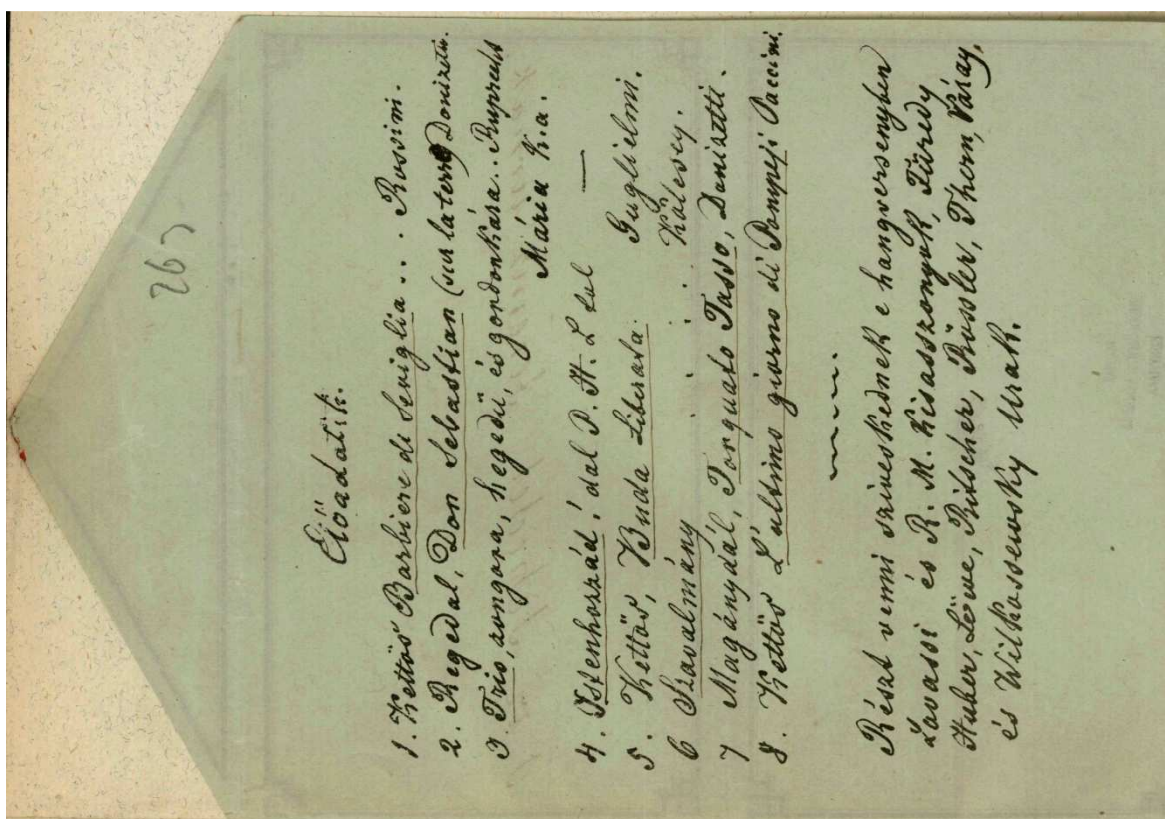 263
Előadatik.
1. Kettős Barbiere di Seviglia... Rossini.
2. Regedal, Don Sebastian (sur la terre) Donizetti.
3. Trio, zongora, hegedű, és gordonkára.. Ruprecht
Mária k.a.
4. Istenhozzád! dal P. H. L tul —
5. Kettős, Buda Liberata. Guglielmi.
6 Szavalmány . . . . Kölcsey.
7 Magánydal, Torquato Tasso, Donizetti.
8. Kettős L'ultimo giorno di Pompeji Paccini.
Részt venni sziveskednek e hangversenyben
Lavassi és R. M. kisasszonyok, Füredy
Huber, Löwe, Pitscher, Rössler, Thern, Váray,
és Wilkossewsky Urak.